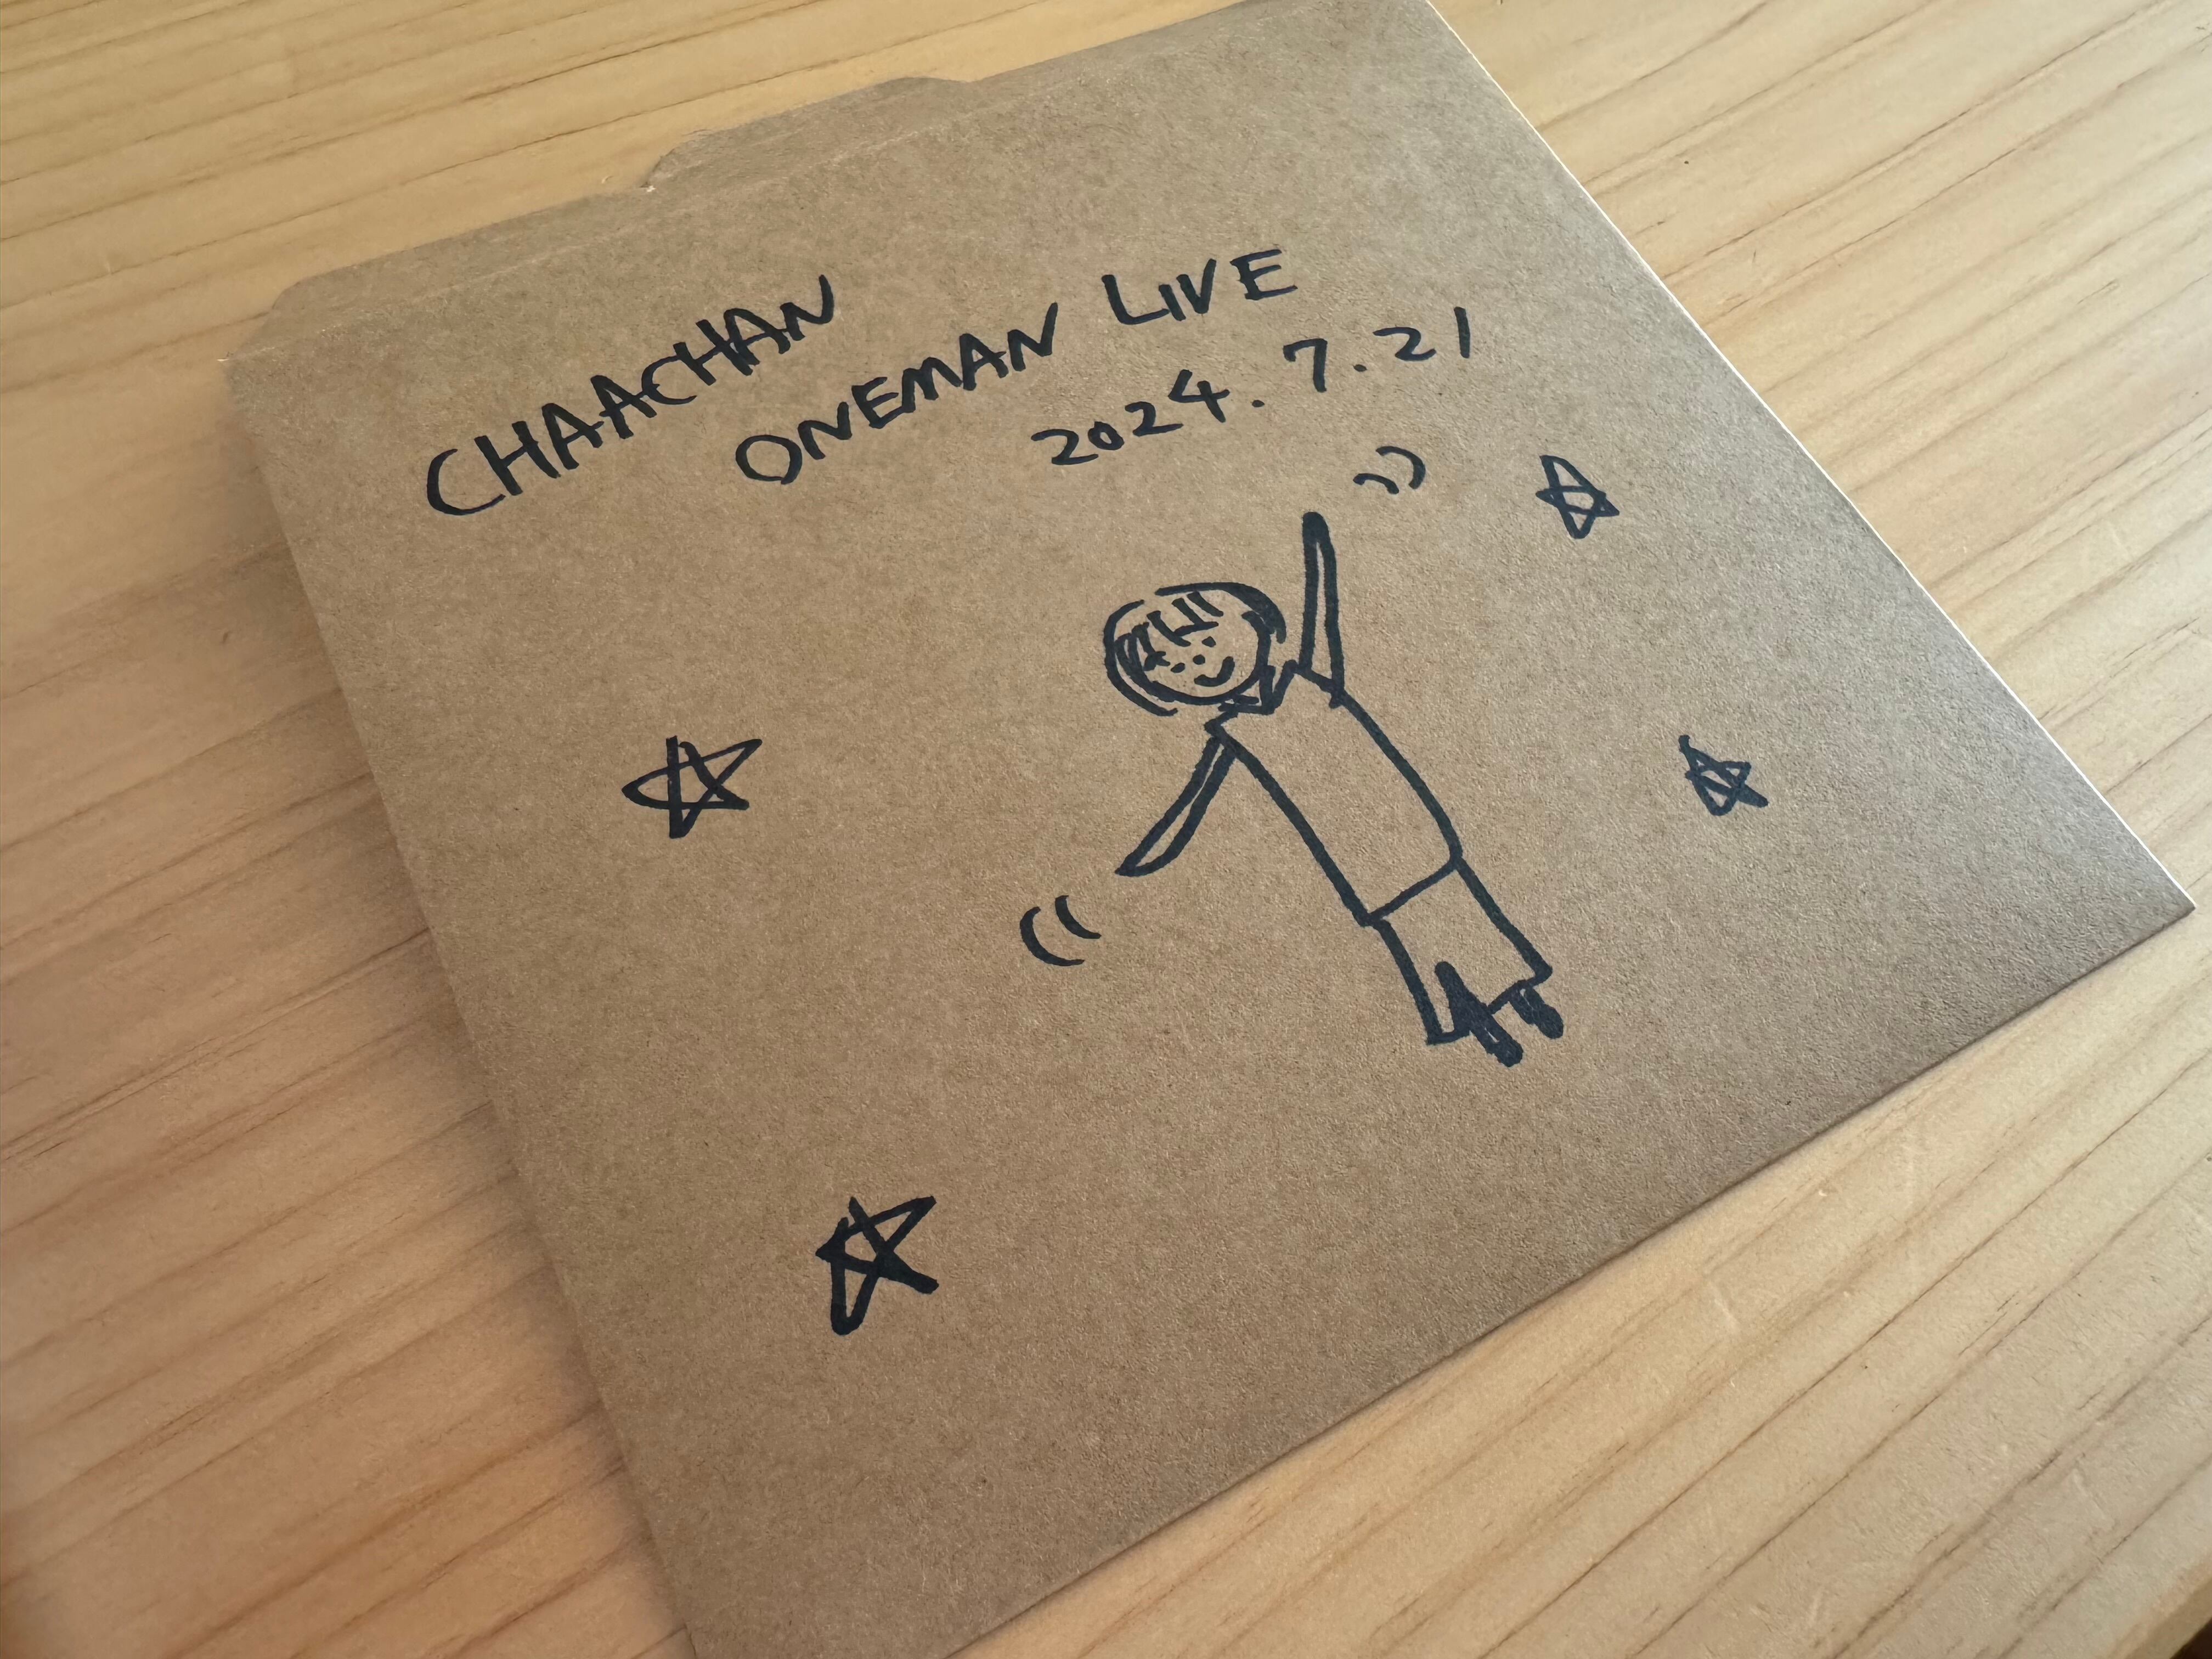 CHAACHAN
ONEMAN LIVE
2024.7.21